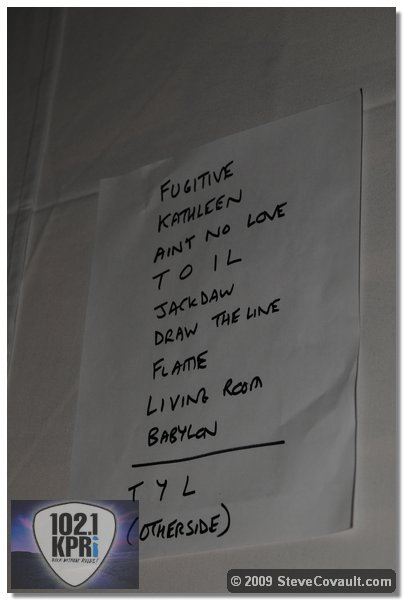 FUGITIVE
KATHLEEN
AINT NO LOVE
T O I L
JACKDAW
DRAW THE LINE
FLAME
LIVING ROOM
BABYLON
T Y L
(OTHERSIDE)
102.1
KPRi
ROCK WITHOUT RULES!
© 2009 SteveCovault.com